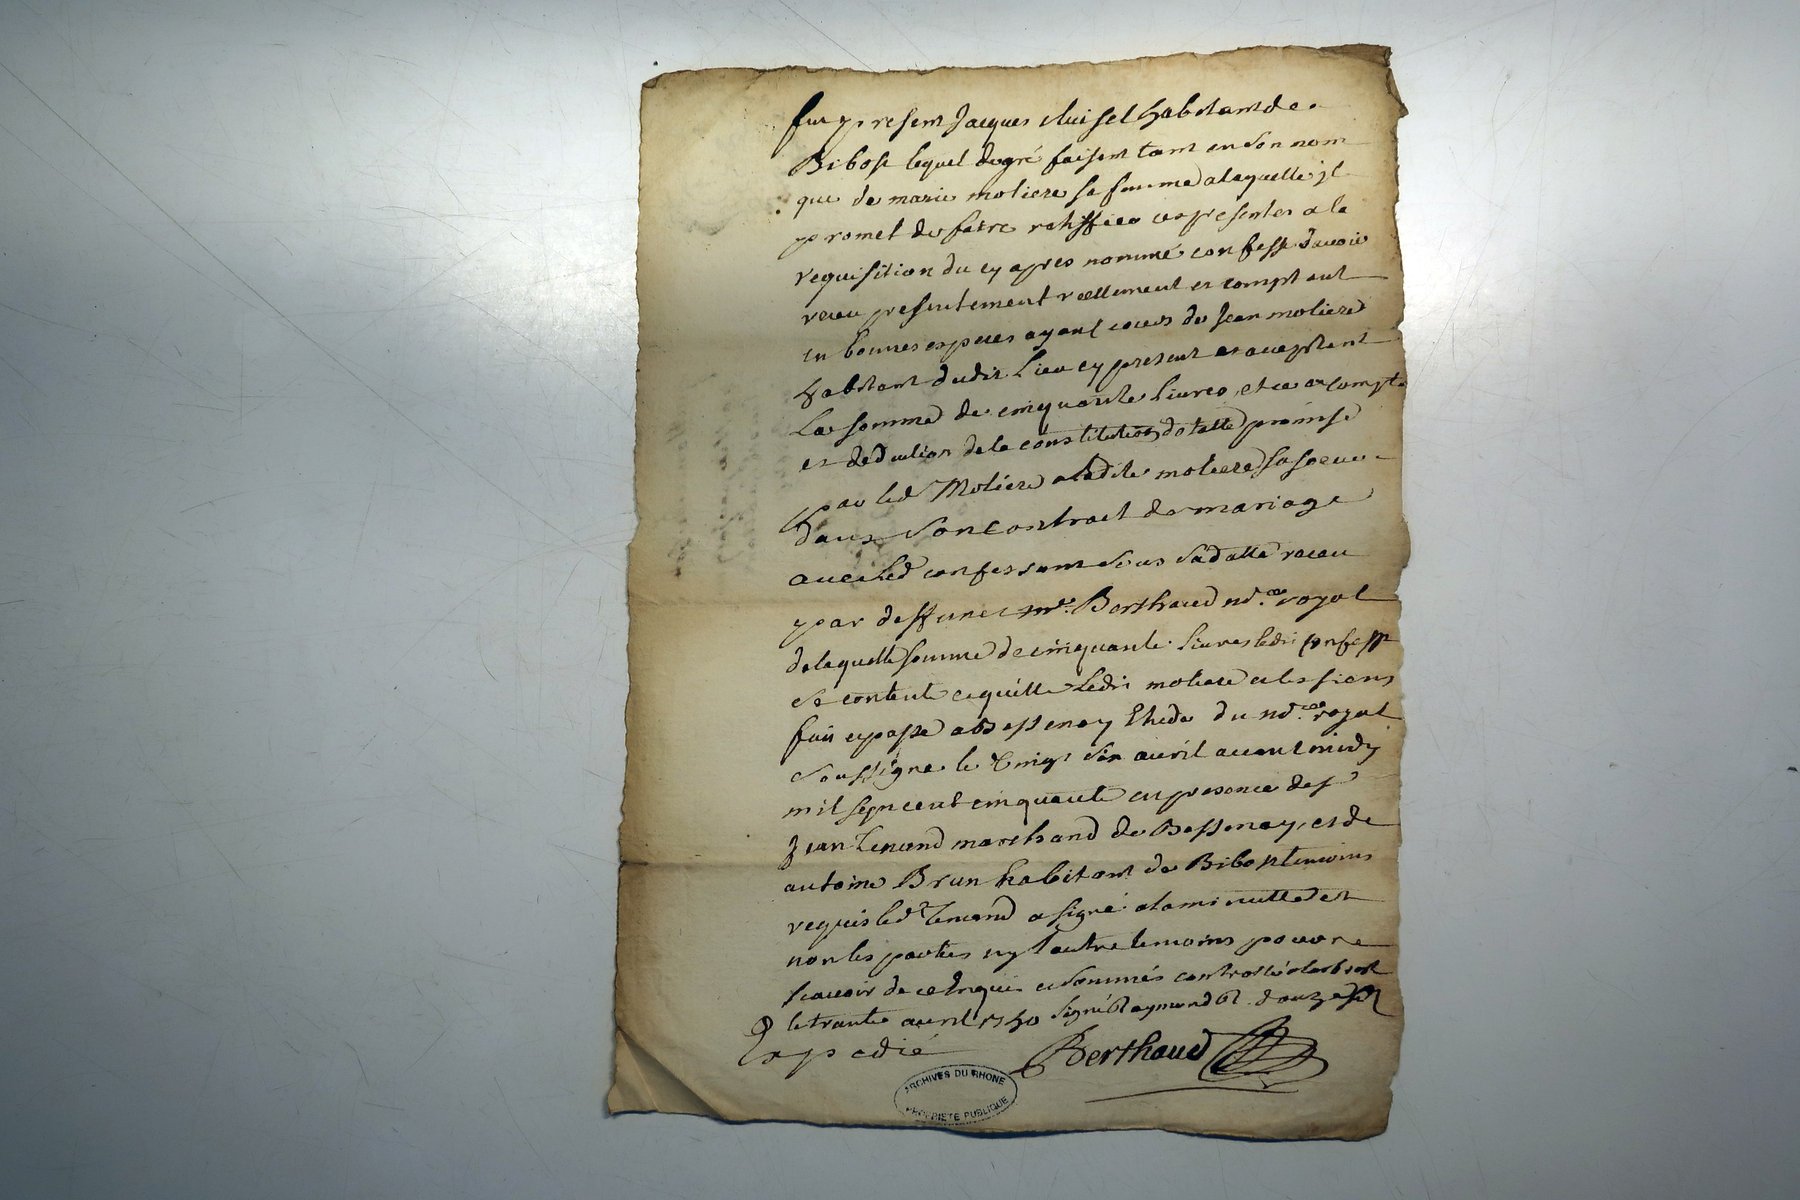 fut present Jacques cluisel habitant de
Bibost lequel de gré faisent tant en son nom
que de marie moliere sa femme a laquelle il
promet de faire ratiffier ces presentes a la
requisition du cy apres nommé confesse d'avoir
receu presentement reellement et comptant
en bonnes especes ayant cours de Jean moliere
habitant dudit Lieu cy present et acceptant
La somme de cinquante livres, et ce a compte
et deduction de la constitution dotalle promise
par led Moliere a ladite moliere sa soeur
dans son contract de mariage
avec led confessant sous sa datte receu
par deffunct me. Berthaud no.re royal
de laquelle somme de cinquante livres ledi confesst
se contente et quitte Ledi moliere et les siens
fait et passé a Bessenay Etude du no.re royal
soussigné le vingt six avril avant midy
mil sept cent cinquante en presence de sr
Jean marchand de Bessenay, et de
antoine Brun habitant de Bibost temoins
requis led a signé a la minutte et
non les parties ny l'autre temoins pour ne
scavoir de ce enquis et sommés controllé a larbresle
le trante avril 1750 signé Raymond Rt. douze s
Expedié
Berthaud
ARCHIVES DU RHONE
PROPRIETE PUBLIQUE